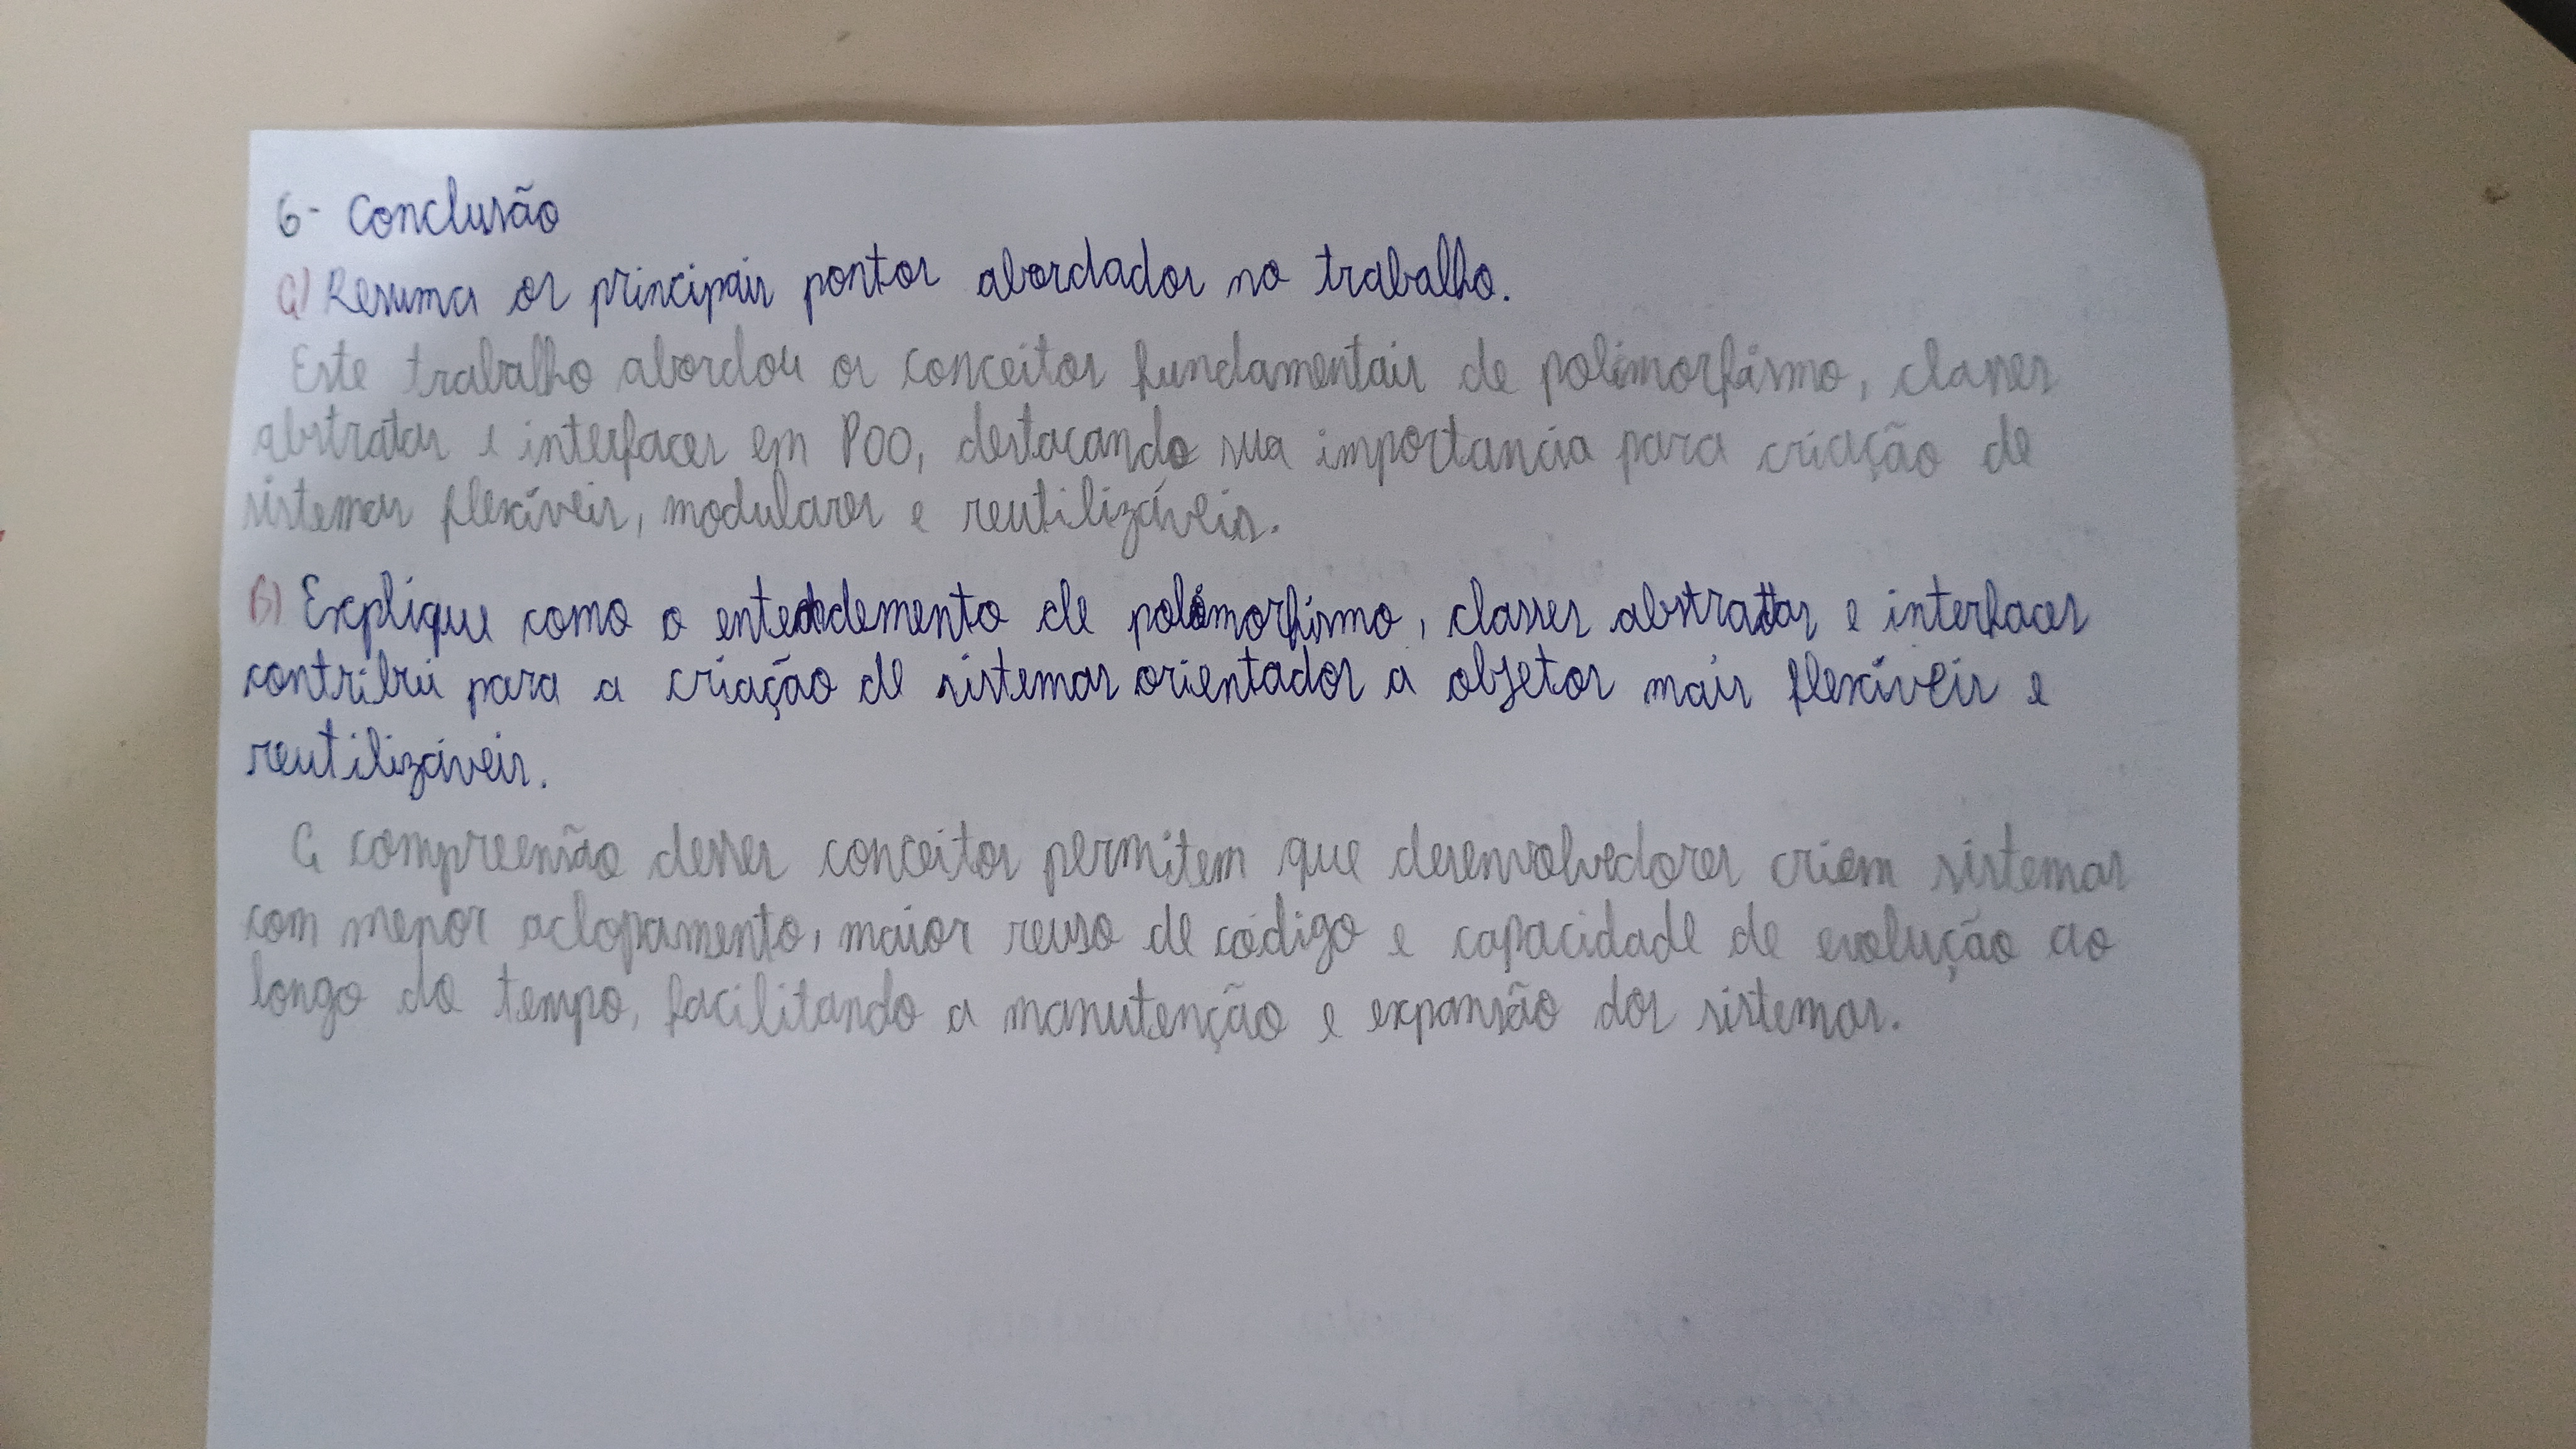 6- Conclusão
A) Resuma os principais pontos abordados no trabalho.
Este trabalho abordou os conceitos fundamentais de polimorfismo, classes
abstratas e interfaces em POO, destacando sua importancia para criação de
sistemas flexíveis, modulares e reutilizáveis.
B) Explique como o entendemento de polimorfismo, classes abstratas e interfaces
contribui para a criação de sistemas orientados a objetos mais flexíveis e
reutilizáveis.
A compreensão desses conceitos permitem que desenvolvedores criem sistemas
com menor aclopamento, maior reuso de código e capacidade de evolução ao
longo do tempo, facilitando a manutenção e expansão dos sistemas.